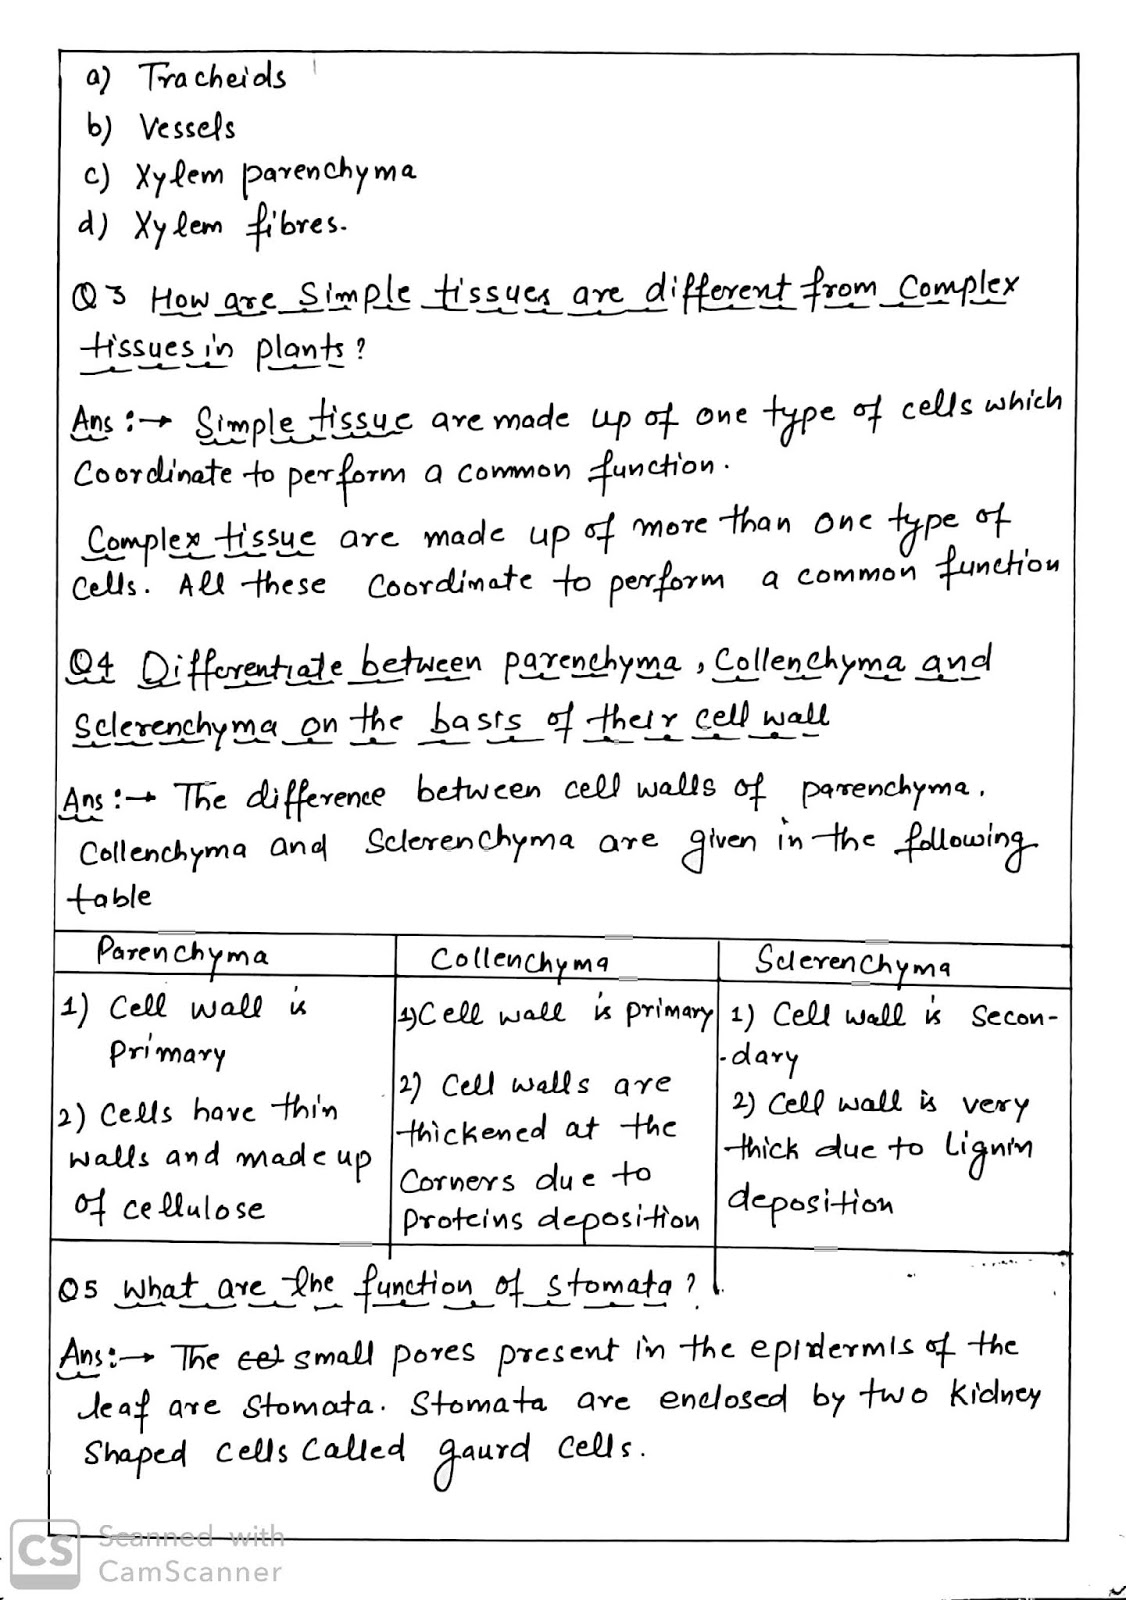 a) Tracheids
b) Vessels
c) Xylem parenchyma
d) Xylem fibres.
Q3 How are Simple tissues are different from Complex
tissues in plants?
Ans :→ Simple tissue are made up of one type of cells which
Coordinate to perform a common function.
Complex tissue are made up of more than one type of
Cells. All these Coordinate to perform a common function
Q4 Differentiate between parenchyma, Collenchyma and
Sclerenchyma on the basis of their cell wall
Ans :→ The difference between cell walls of parenchyma.
Collenchyma and Sclerenchyma are given in the following
table
Parenchyma
1) Cell wall is
primary
2) Cells have thin
walls and made up
of cellulose
Collenchyma
1) Cell wall is primary
2) Cell walls are
thickened at the
Corners due to
Proteins deposition
Sclerenchyma
1) Cell wall is Secon-
-dary
2) Cell wall is very
thick due to Lignin
deposition
Q5 What are the function of stomata?
Ans :→ The cel small pores present in the epidermis of the
leaf are Stomata. Stomata are enclosed by two kidney
Shaped cells Called gaurd Cells.
CS Scanned with
CamScanner